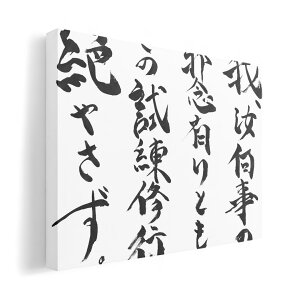 我、汝何事の
邪念有りとも
の試練修行
絶やさず。